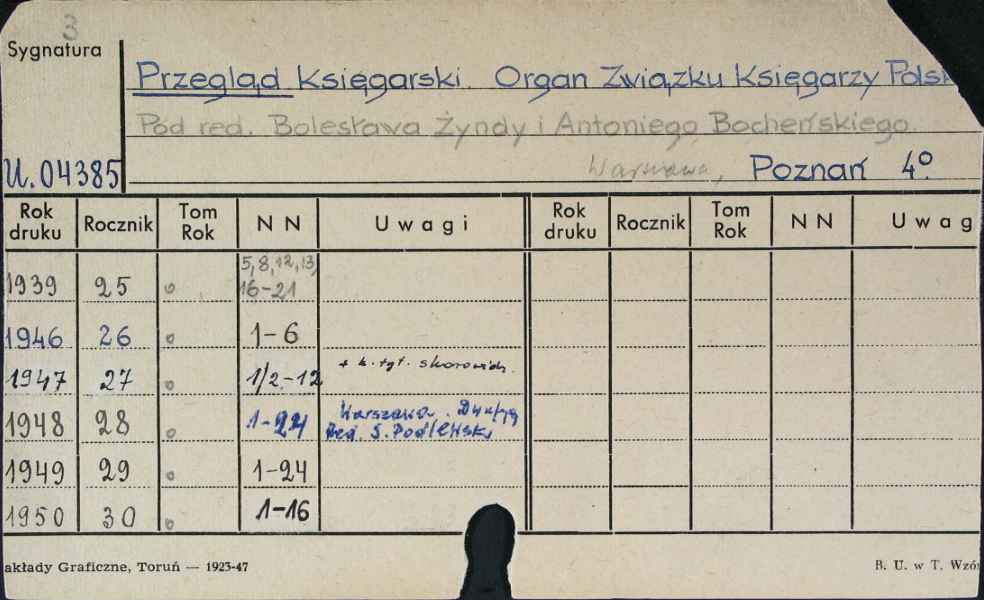 3
Sygnatura
Przegląd Księgarski. Organ Związku Księgarzy Polsk
Pod red. Bolesława Żyndy i Antoniego Bocheńskiego.
U.04385 Warszawa, Poznań 4º.
Rok druku Rocznik Tom Rok N N Uwagi Rok druku Rocznik Tom Rok N N Uwag
5, 8, 12, 13,
1939 25 16-21
1946 26 1-6
1947 27 1/2-12 + k. tyt. skorowidz.
1948 28 1-24 Warszawa.
Red. S. Podlewski
1949 29 1-24
1950 30 1-16
akłady Graficzne, Toruń — 1923-47 B. U. w T. Wzór